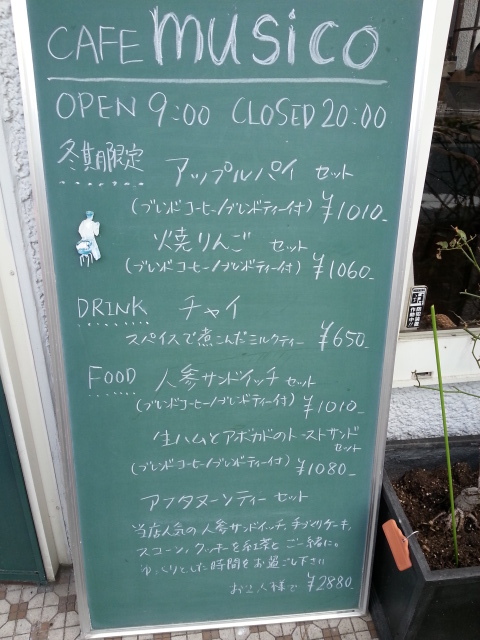 CAFE musico
OPEN 9:00 CLOSED 20:00
冬期限定 アップルパイ セット
(ブレンドコーヒー/ブレンドティー付) ¥1010-
焼りんご セット
(ブレンドコーヒー/ブレンドティー付) ¥1060-
DRINK チャイ
スパイスで煮こんだミルクティー ¥650-
FOOD 人参サンドイッチ セット
(ブレンドコーヒー/ブレンドティー付) ¥1010-
生ハムとアボガドのトーストサンド
セット
(ブレンドコーヒー/ブレンドティー付) ¥1080-
アフタヌーンティー セット
当店人気の人参サンドイッチ、手づくりケーキ、
スコーン、クッキーを紅茶と ご一緒に。
ゆっくりとした時間をお過ごし下さい
お2人様で ¥2880-